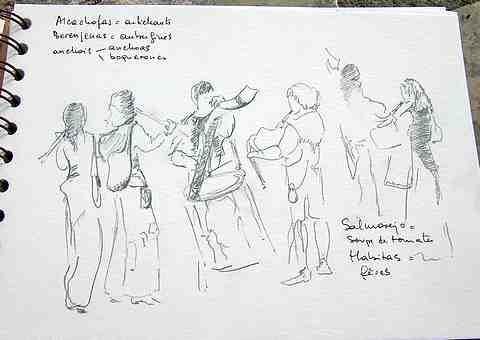 Alcachofas = artichauts
Berenjenas = aubergines
anchois - anchoas
boquerones
Salmorejo =
soupe de tomates
Habitas =
fèves